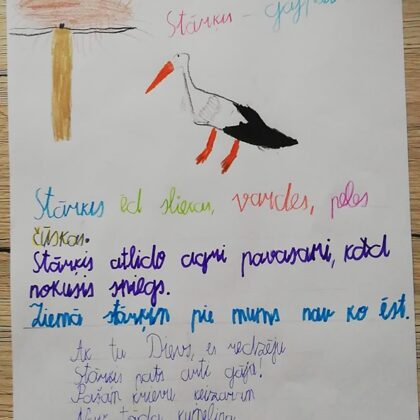 Stārķis –
Stārķis ēd sliekas, vardes, peles
čūskas.
Stārķis atlido agri pavasarī, kad
nokusis sniegs.
Ziemā stārķim pie mums nav ko ēst.
Ak tu Dievs, es redzēju
Stārķis pats arti gāja!
Pašam krievu keizaram